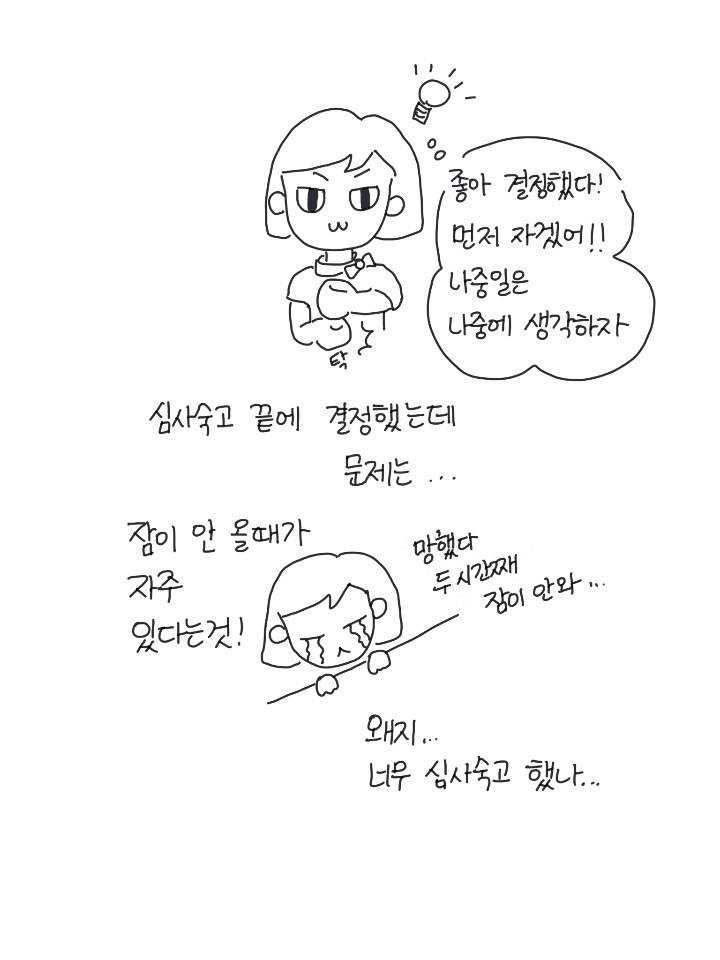 좋아 결정했다!
먼저 자겠어!!
나중일은
나중에 생각하자
탁
심사숙고 끝에 결정했는데
문제는 ...
잠이 안 올때가
자주
있다는것!
망했다
두시간째
잠이 안와...
왜지...
너무 심사숙고 했나...